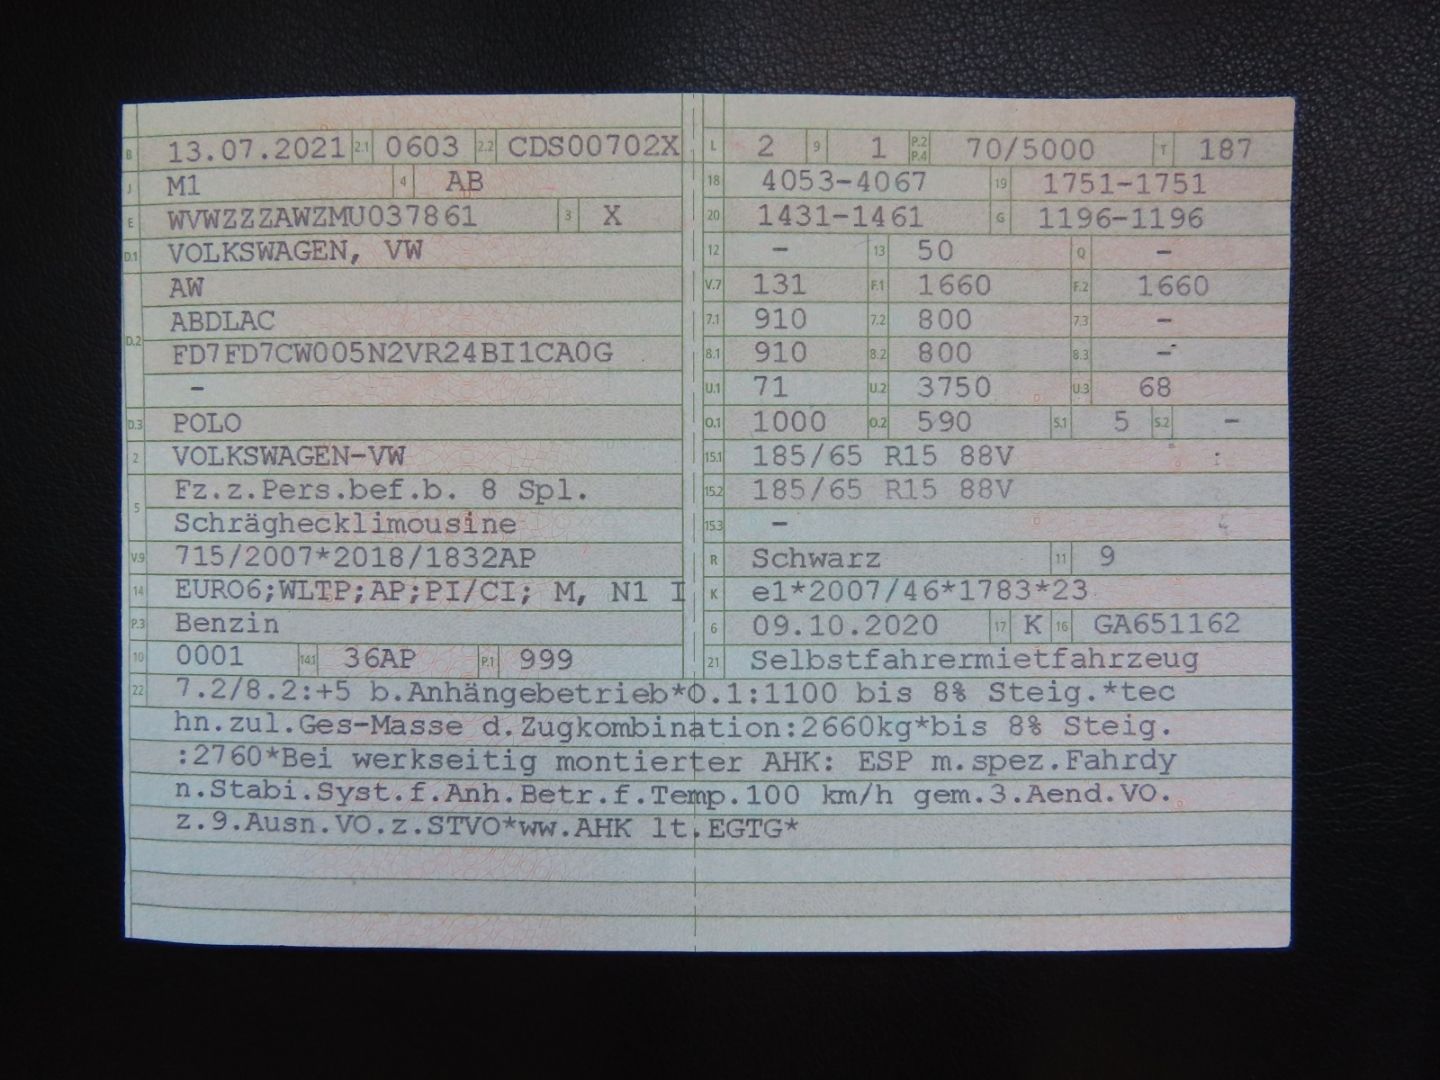 B 13.07.2021 2.1 0603 2.2 CDS00702X
J M1 4 AB
E WVWZZZAWZMU037861 3 X
D.1 VOLKSWAGEN, VW
AW
D.2 ABDLAC
FD7FD7CW005N2VR24BI1CA0G
–
D.3 POLO
2 VOLKSWAGEN-VW
5 Fz.z.Pers.bef.b. 8 Spl.
Schräghecklimousine
V.9 715/2007*2018/1832AP
14 EURO6;WLTP;AP;PI/CI; M, N1 I
P.3 Benzin
10 0001 14.1 36AP P.1 999
L 2 9 1 P.2 P.4 70/5000 T 187
18 4053-4067 19 1751-1751
20 1431-1461 G 1196-1196
12 – 13 50 Q –
V.7 131 F.1 1660 F.2 1660
7.1 910 7.2 800 7.3 –
8.1 910 8.2 800 8.3 –
U.1 71 U.2 3750 U.3 68
O.1 1000 O.2 590 S.1 5 S.2 –
15.1 185/65 R15 88V
15.2 185/65 R15 88V
15.3 –
R Schwarz 11 9
K e1*2007/46*1783*23
6 09.10.2020 17 K 16 GA651162
21 Selbstfahrermietfahrzeug
22 7.2/8.2:+5 b.Anhängebetrieb*O.1:1100 bis 8% Steig.*tec
hn.zul.Ges-Masse d.Zugkombination:2660kg*bis 8% Steig.
:2760*Bei werkseitig montierter AHK: ESP m.spez.Fahrdy
n.Stabi.Syst.f.Anh.Betr.f.Temp.100 km/h gem.3.Aend.VO.
z.9.Ausn.VO.z.STVO*ww.AHK lt.EGTG*